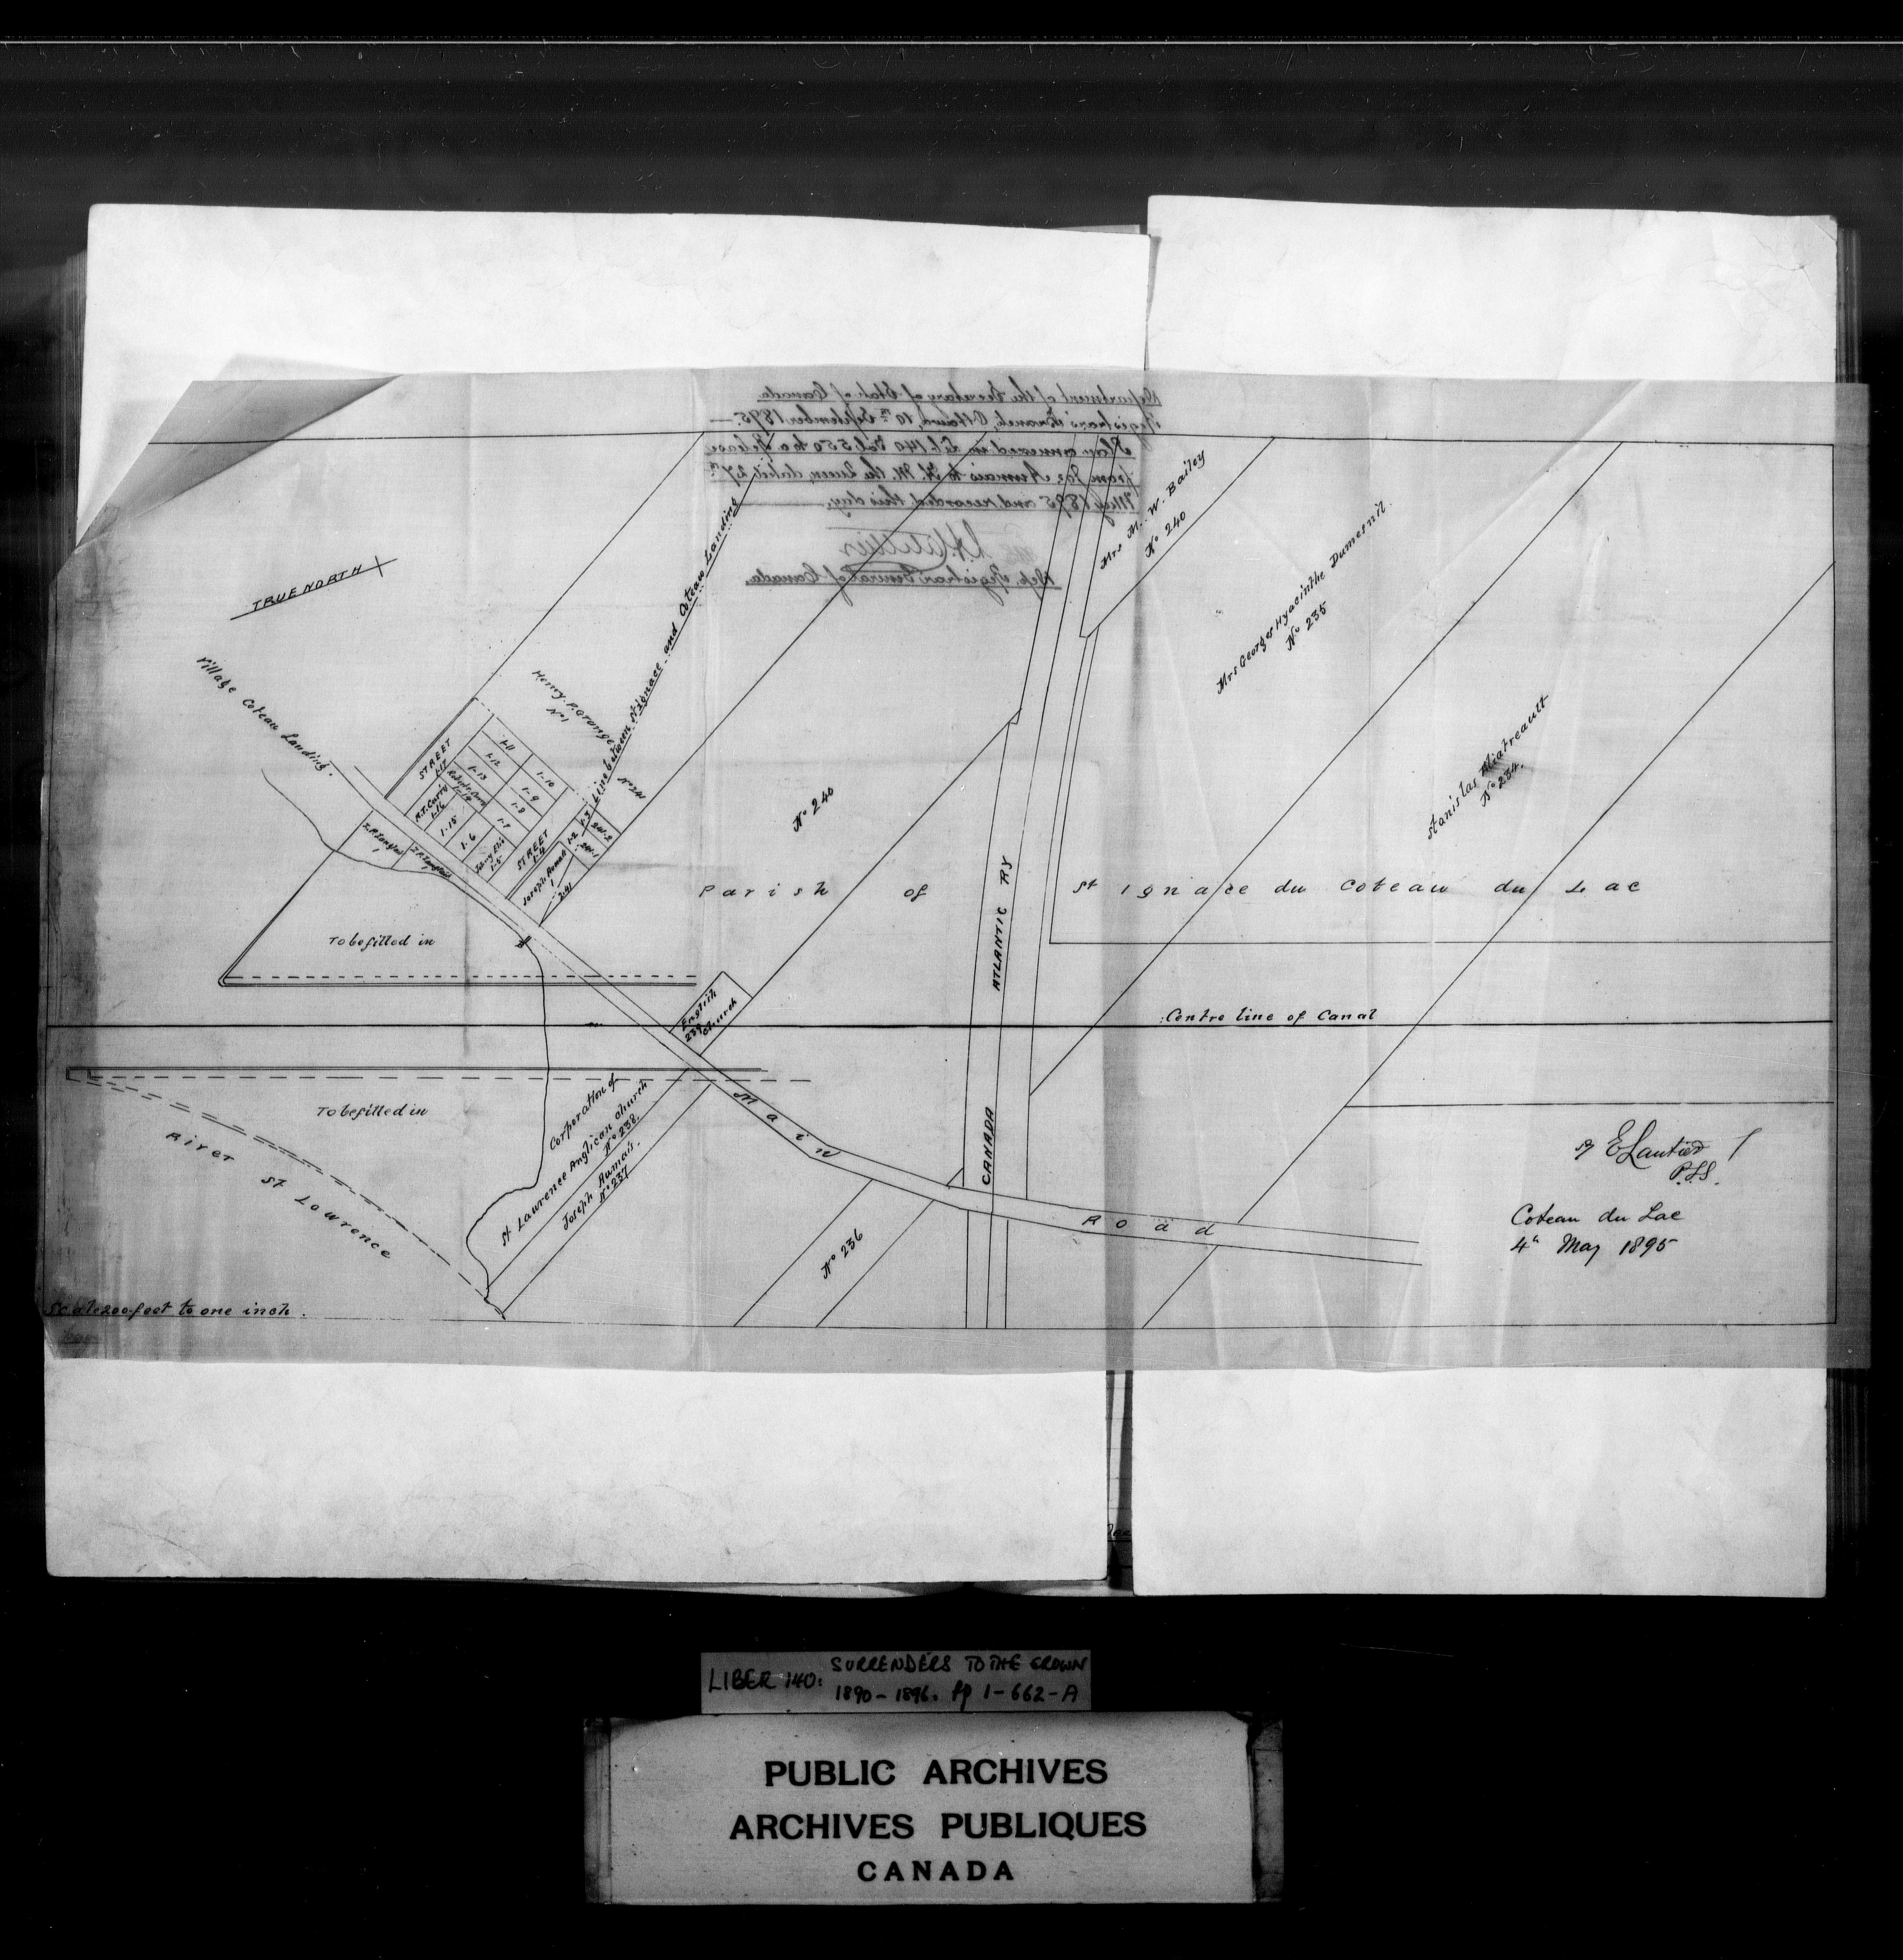 Department of the Secretary of State of Canada.
Registrar's Branch, Ottawa, 10th September 1895.—
Plan annexed in Lib. 140 Fol. 550 to a Release
from Jos. Aumais to H. M. the Queen, dated 27th
May 1895 and recorded this day.
Dep. Registrar General of Canada.
TRUE NORTH
Village Coteau Landing.
Henry P. Grange
No 1
Line between St Ignace and Coteau Landing
No 241
STREET
1-17
R.T. Curry
1-16
1-15
1-14
1-13
1-12
1-11
1-10
1-9
1-8
1-7
1-6
1-5
STREET
1-4
Joseph Aumais
1
1-2
1-3
241-2
241-1
241
To be filled in
English
Church
239
No 240
Mrs M. W. Bailey
No 240
Mrs George Hyacinthe Dumesnil.
No 235
Stanislas
No 234.
Parish of St Ignace du Coteau du Lac
CANADA ATLANTIC RY
Centre line of Canal
To be filled in
River St Lawrence
Corporation of
St Lawrence Anglican Church
No 238.
Joseph Aumais.
No 237
Main Road
No 236
Scale 200 feet to one inch.
P.L.S.
Coteau du Lac
4th May 1895
LIBER 140: SURRENDERS TO THE CROWN
1890-1896. pp 1-662-A
PUBLIC ARCHIVES
ARCHIVES PUBLIQUES
CANADA